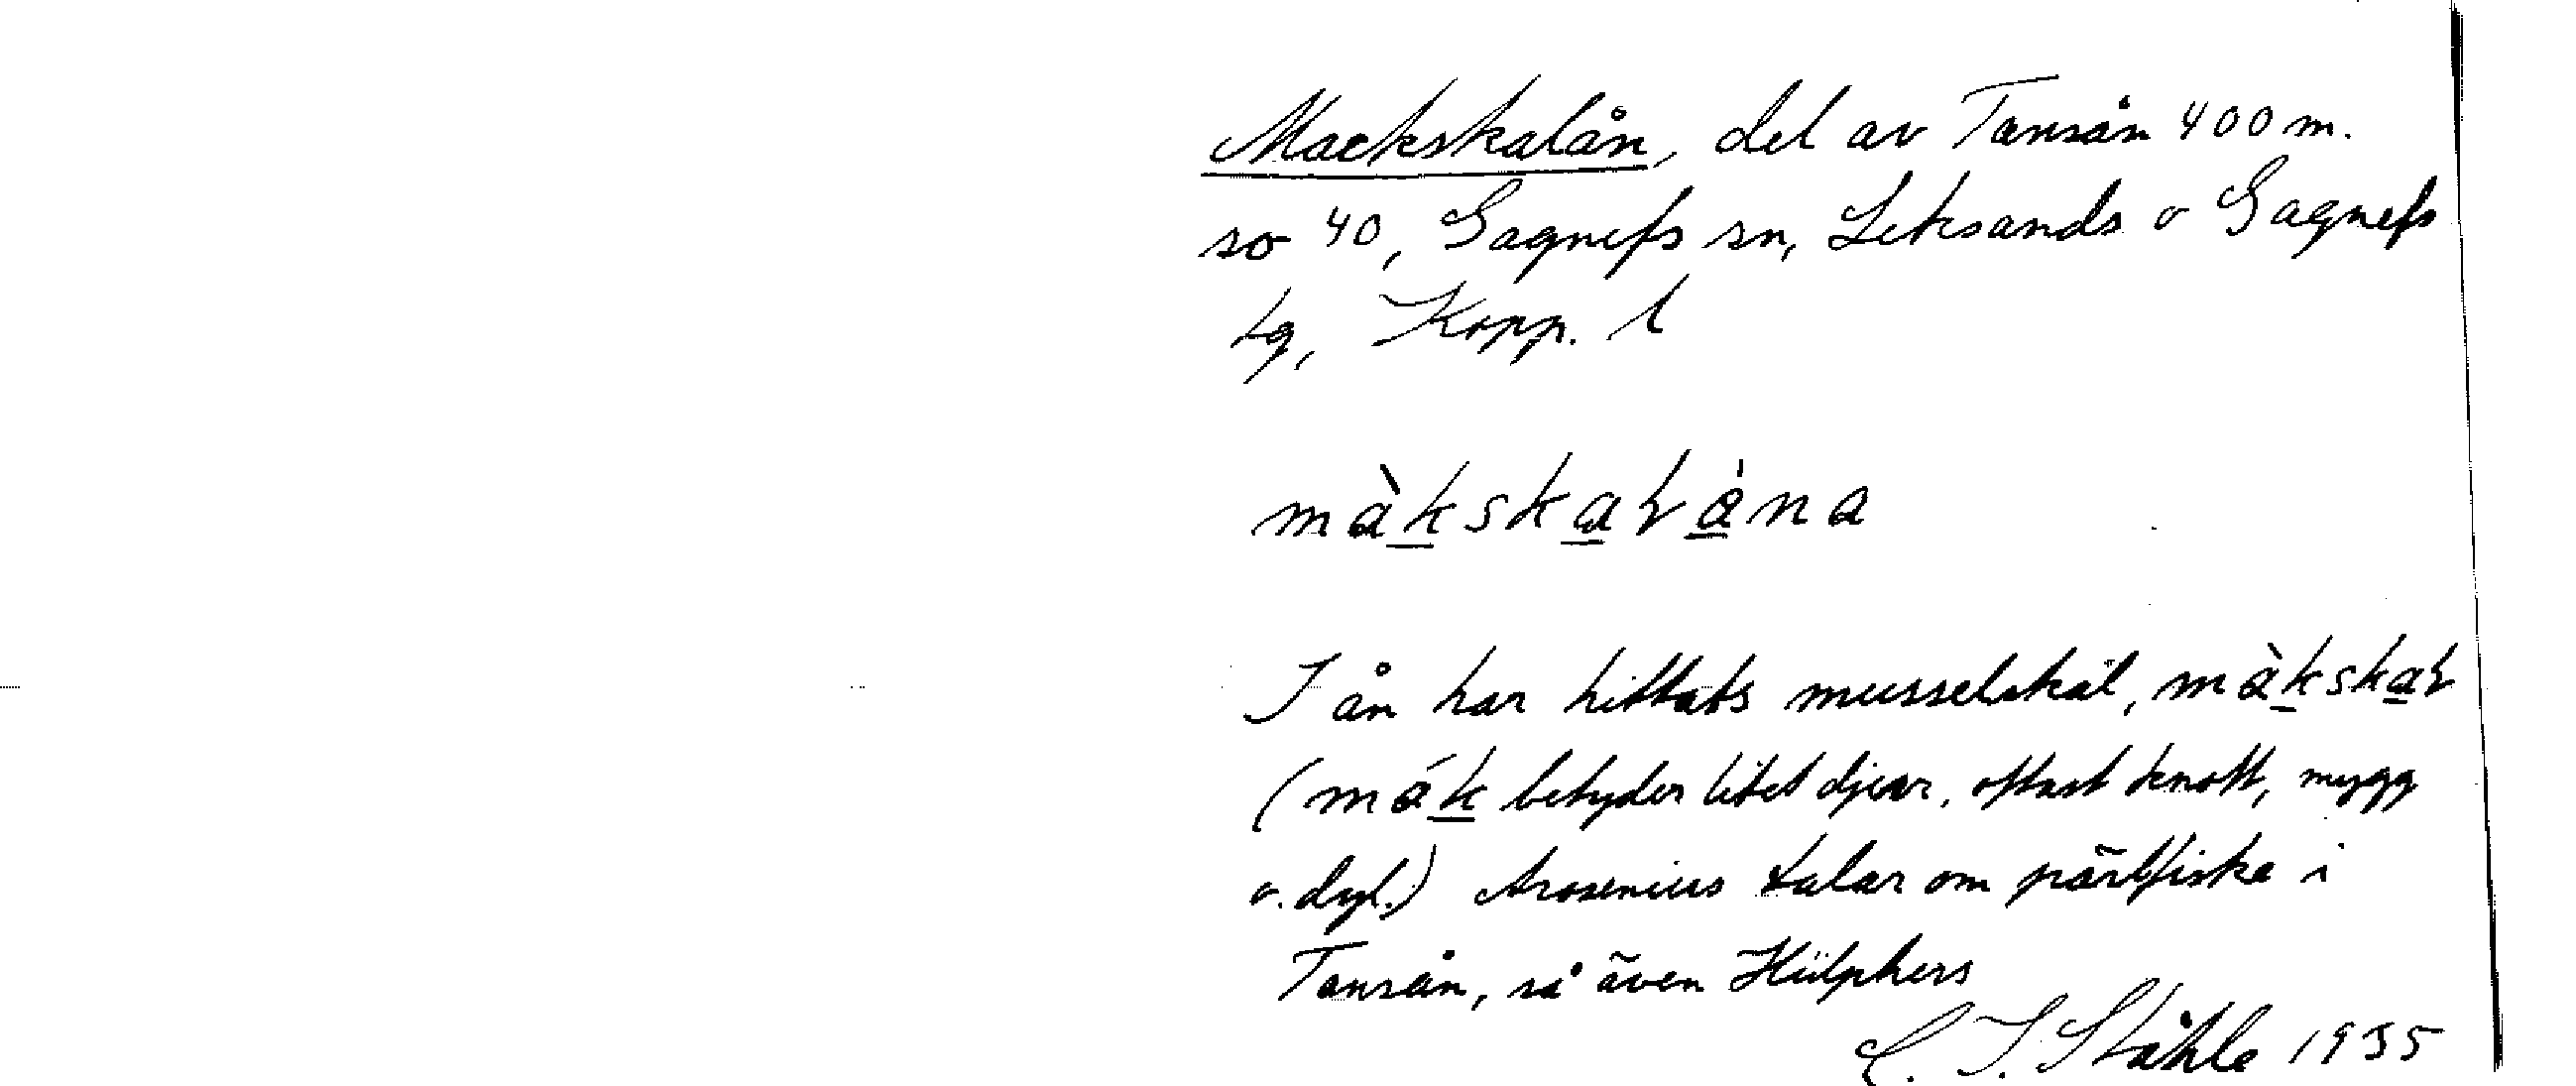 Mackskalån, del av Tansån 400 m.
so 40, Gagnefs sn, Leksands o Gagnefs
tg, Kopp. l
màkskaɫȧna
I ån har hittats musselskal, màkskaɫ
(mák betyder litet djur, oftast knott, mygg
o. dyl.) Arosenius talar om pärlfiske i
Tansån, så även Hülphers
C. I. Ståhle 1935